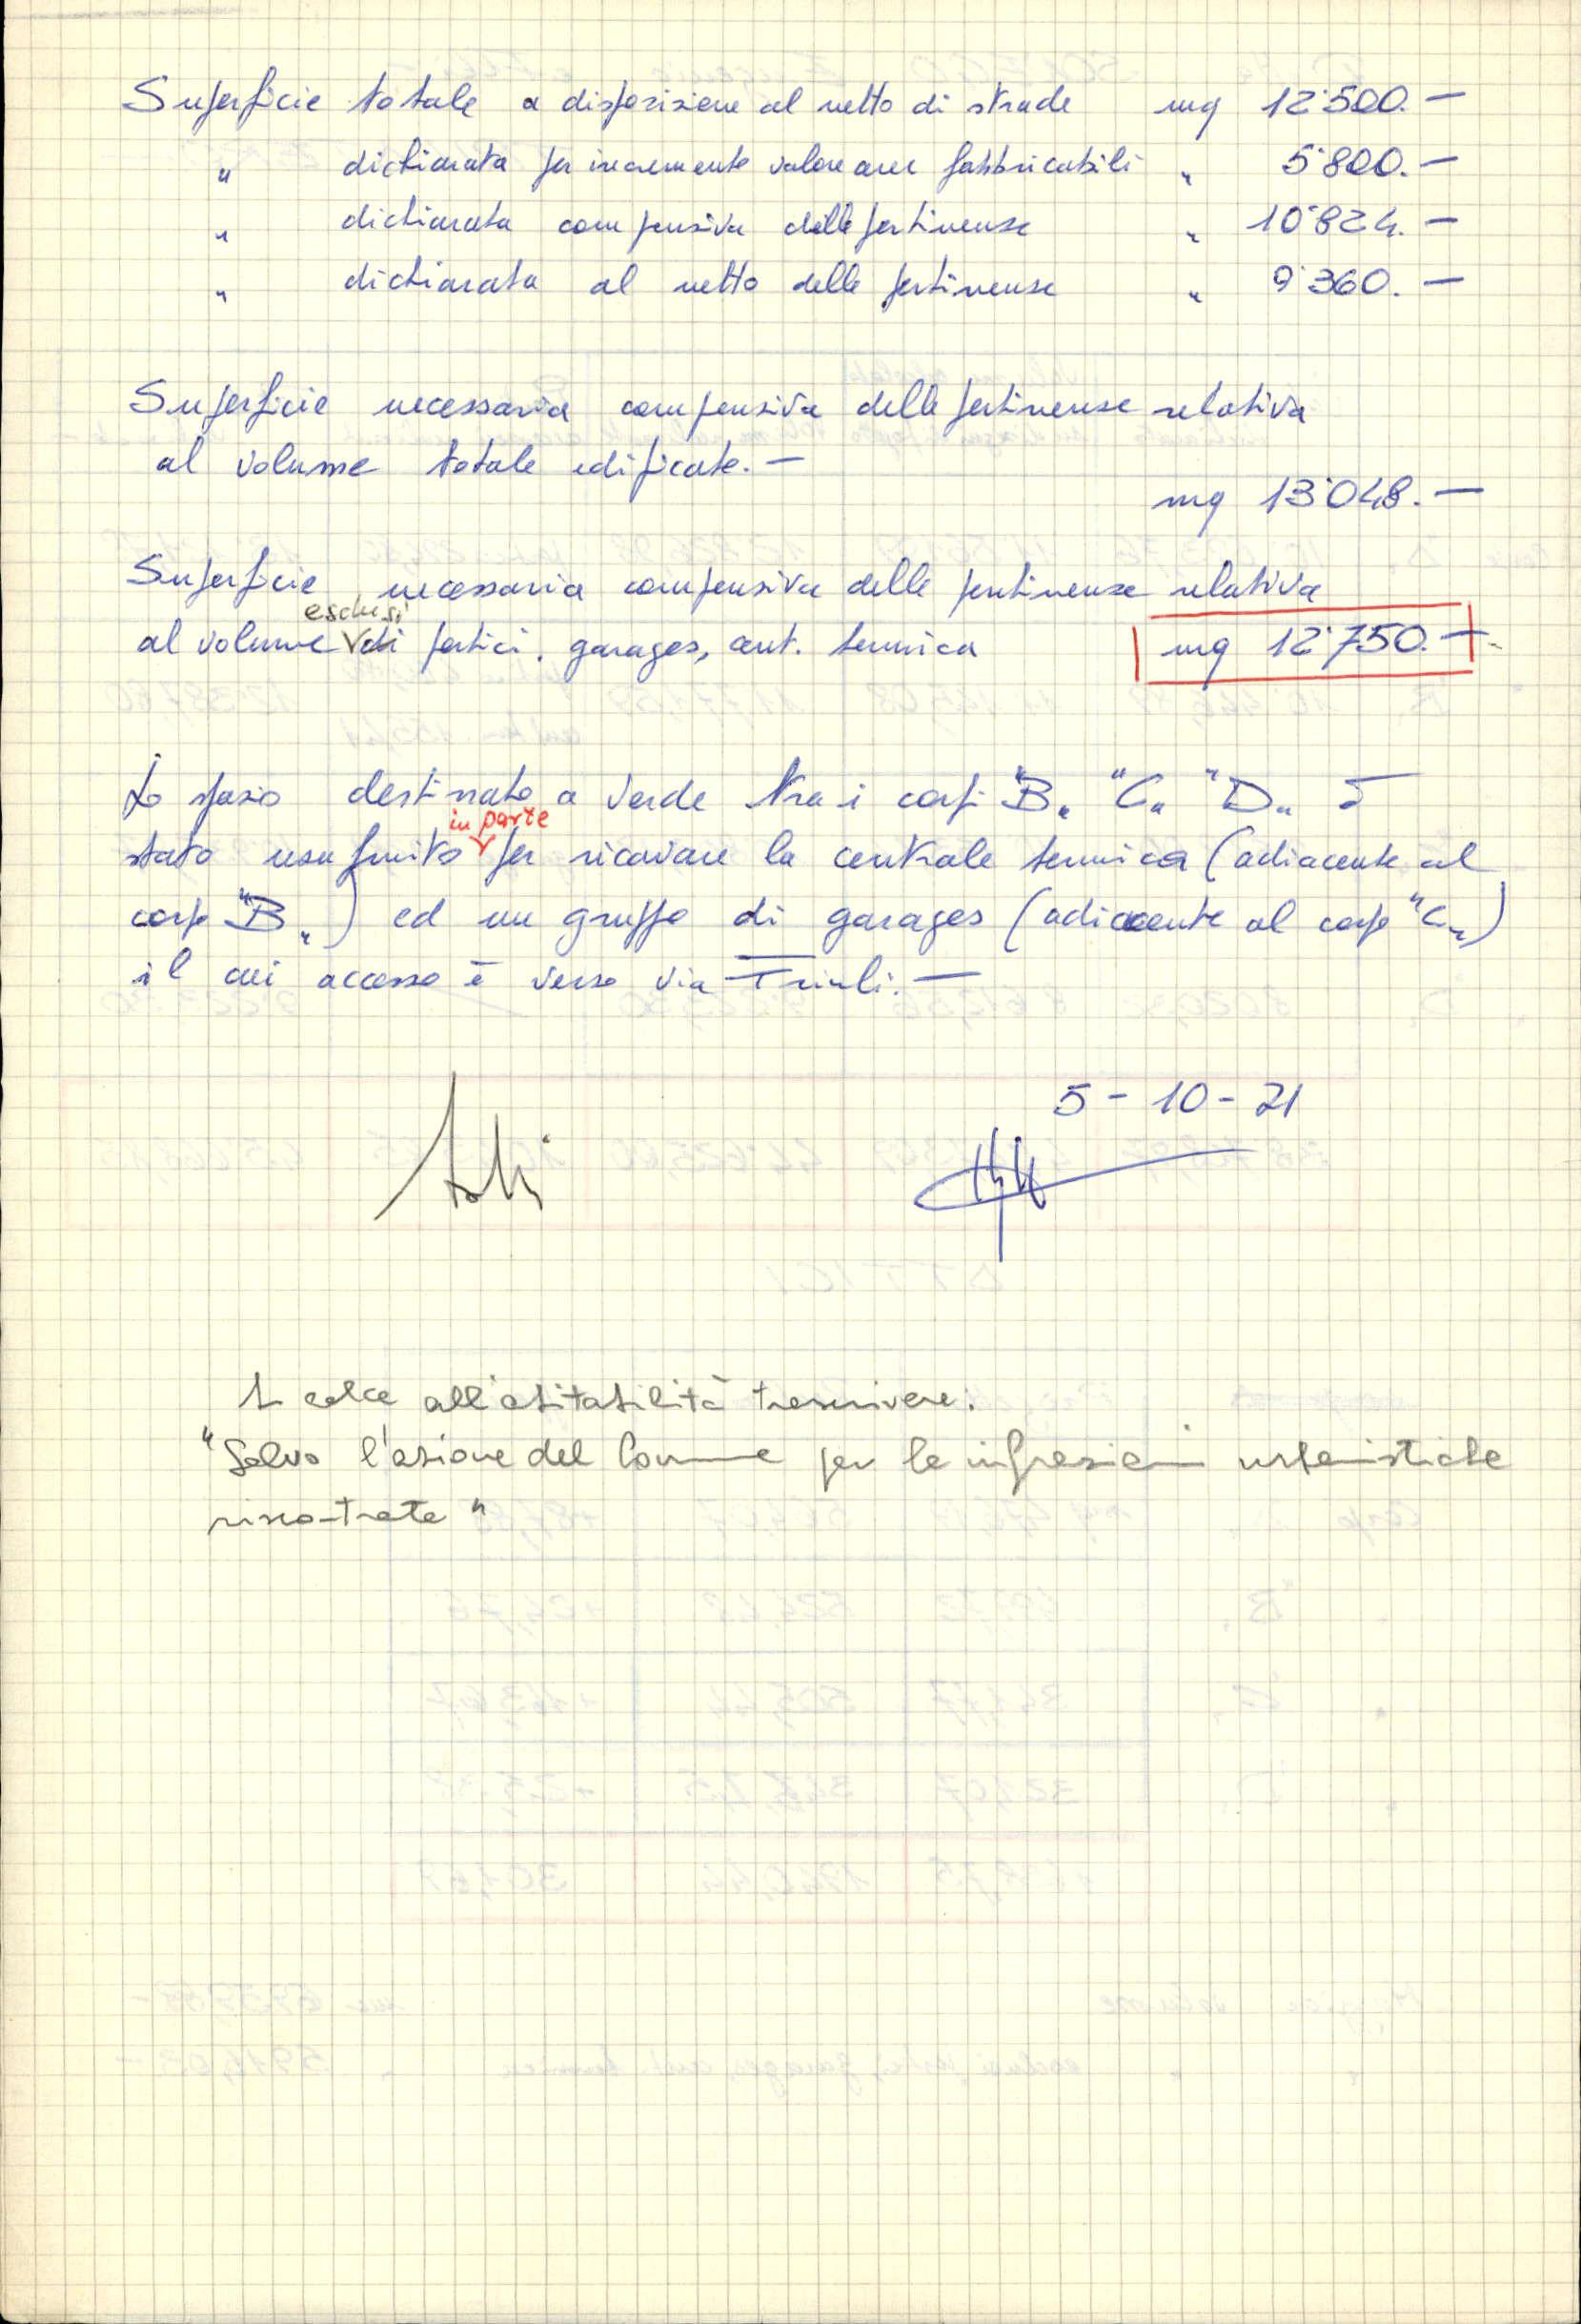 Superficie totale a disposizione al netto di strade mq 12'500.—
" dichiarata per incremento valore aree fabbricabili " 5'800.—
" dichiarata compensiva delle pertinenze " 10'824.—
" dichiarata al netto delle pertinenze " 9'360.—
Superficie necessaria compensiva delle pertinenze relativa
al volume totale edificato.—
mq 13'048.—
Superficie necessaria compensiva delle pertinenze relativa
esclusi
al volume di portici, garages, cent. termica mq 12'750.—
Lo spazio destinato a verde tra i corpi "B" "C" "D" è
in parte
stato usufruito per ricavare la centrale termica (adiacente al
corpo "B") ed un gruppo di garages (adiacente al corpo "C")
il cui accesso è verso via Friuli.—
5 - 10 - 71
In calce all'abitabilità trascrivere:
"Salvo l'azione del Comune per le infrazioni urbanistiche
riscontrate"